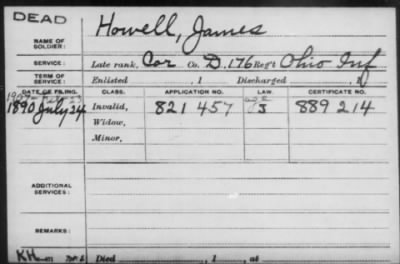 DEAD
Howell, James
NAME OF SOLDIER:
SERVICE: Late rank, Cor Co. D, 176 Reg't Ohio Inf
TERM OF SERVICE: Enlisted , 1 Discharged , 1
DATE OF FILING. CLASS. APPLICATION NO. LAW. CERTIFICATE NO.
1890 July 24 Invalid, 821 457 J 889 214
Widow,
Minor,
ADDITIONAL SERVICES:
REMARKS:
Died , 1 , at